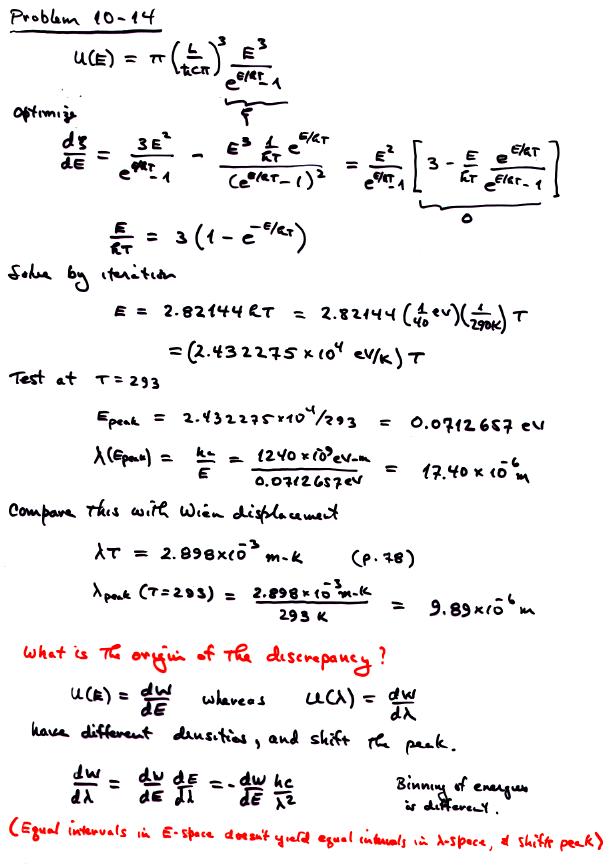 Problem 10-14
U(E) = π (L/ħcπ)^3 E^3/(e^{E/kT} - 1)
ξ
Optimize
dξ/dE = 3E^2/(e^{E/kT} - 1) - E^3 (1/kT) e^{E/kT}/(e^{E/kT} - 1)^2 = E^2/(e^{E/kT} - 1) [3 - (E/kT) e^{E/kT}/(e^{E/kT} - 1)]
0
E/kT = 3(1 - e^{-E/kT})
Solve by iteration
E = 2.82144 kT = 2.82144 (1/40 eV)(1/290K) T
= (2.432275 × 10^4 eV/K) T
Test at T = 293
E_peak = 2.432275×10^4/293 = 0.0712657 eV
λ(E_peak) = hc/E = 1240 × 10^9 eV-m / 0.0712657 eV = 17.40 × 10^-6 m
Compare this with Wien displacement
λT = 2.898×10^-3 m-K (p. 78)
λ_peak (T=293) = 2.898×10^-3 m-K / 293 K = 9.89×10^-6 m
What is the origin of the discrepancy?
U(E) = dW/dE whereas U(λ) = dW/dλ
have different densities, and shift the peak.
dW/dλ = dW/dE dE/dλ = - dW/dE hc/λ^2 Binning of energies
is different.
(Equal intervals in E-space doesn't yield equal intervals in λ-space, & shifts peak)